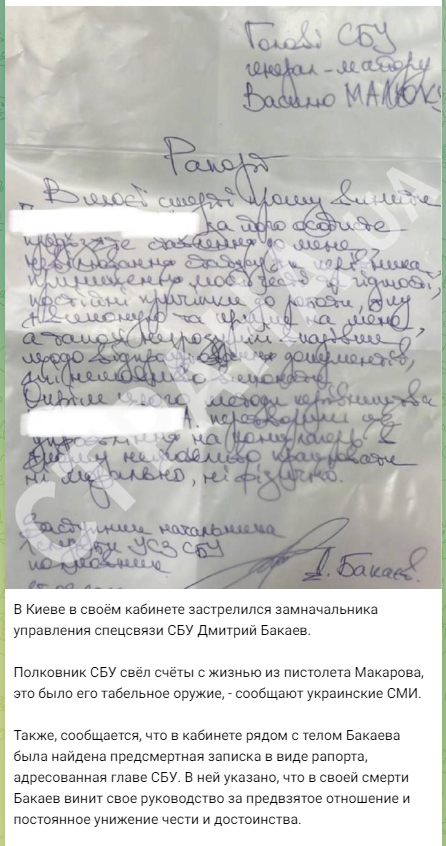 Голові СБУ
генерал-майору
Василю МАЛЮКУ
Рапорт
В моїй смерті прошу винити
за його особисте
ставлення до мене,
керівника,
приниження моєї честі та гідності,
постійні до роботи,
та на мене,
а також
щодо документів,
методи керівництва
А. перетворили
управління на концтабір в
якому неможливо працювати
ні морально, ні фізично.
Заступник начальника
УСЗ СБУ
полковник
Д. Бакаєв
СТРАНА.UA
В Киеве в своём кабинете застрелился замначальника
управления спецсвязи СБУ Дмитрий Бакаев.
Полковник СБУ свёл счёты с жизнью из пистолета Макарова,
это было его табельное оружие, - сообщают украинские СМИ.
Также, сообщается, что в кабинете рядом с телом Бакаева
была найдена предсмертная записка в виде рапорта,
адресованная главе СБУ. В ней указано, что в своей смерти
Бакаев винит свое руководство за предвзятое отношение и
постоянное унижение чести и достоинства.